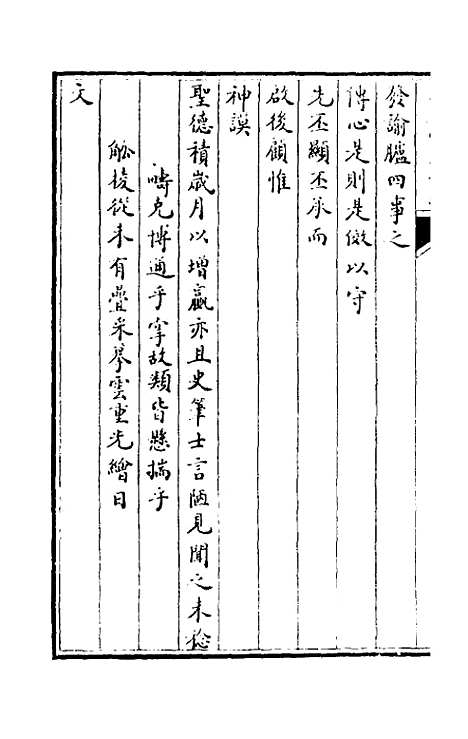 發諭臚四事之
傳心是則是傚以守
先丕顯丕承而
啟後顧惟
神謨
聖德積歲月以增贏亦且史筆士言陋見聞之未稔
疇克博通乎掌故類皆懸揣乎
觚稜從未有疊采摹雲重光繪日
文